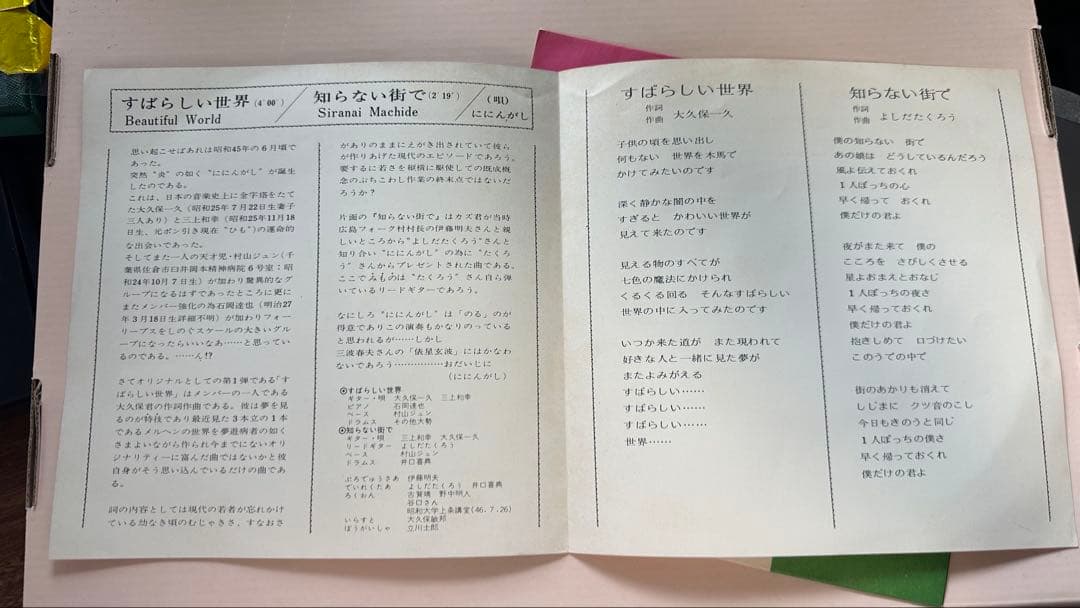 すばらしい世界(4′00″)
Beautiful World
知らない街で(2′19″)
Siranai Machide
(唄)
ににんがし
思い起こせばあれは昭和45年の6月頃で
あった。
突然“炎”の如く“ににんがし”が誕生
したのである。
これは、日本の音楽史上に金字塔をたて
た大久保一久(昭和25年7月22日生妻子
三人あり)と三上和幸(昭和25年11月18
日生、元ポン引き現在“ひも”)の運命的
な出会いであった。
そしてまた一人の天才児・村山ジュン(千
葉県佐倉市臼井岡本精神病院6号室:昭
和24年10月7日生)が加わり驚異的なグ
ループになるはずであったところに更に
またメンバー強化の為石岡達也(明治27
年3月18日生詳細不明)が加わりフォー
リーブスをしのぐスケールの大きいグル
ープになったらいいなあ……と思ってい
るのである。……ん!?
さてオリジナルとしての第1弾である「す
ばらしい世界」はメンバーの一人である
大久保君の作詞作曲である。彼は夢を見
るのが特技であり最近見た3本立の1本
であるメルヘンの世界を夢遊病者の如く
さまよいながら作られ今までにないオリ
ジナリティーに富んだ曲ではないかと彼
自身がそう思い込んでいるだけの曲であ
る。
詞の内容としては現代の若者が忘れかけ
ている幼なき頃のむじゃきさ、すなおさ
がありのままにえがき出されていて彼ら
が作りあげた現代のエピソードであろう。
要するに若さを縦横に駆使しての既成概
念のぶちこわし作業の終末点ではないだ
ろうか?
片面の『知らない街で』はカズ君が当時
広島フォーク村村長の伊藤明夫さんと親
しいところから“よしだたくろう”さんと
知り合い“ににんがし”の為に“たくろ
う”さんからプレゼントされた曲である。
ここでみものは“たくろう”さん自ら弾
いているリードギターであろう。
なにしろ“ににんがし”は「のる」のが
得意でありこの演奏もかなりのっている
と思われるが……しかし
三波春夫さんの「俵星玄波」にはかなわ
ないであろう…………おだいじに
(ににんがし)
◎すばらしい世界
ギター・唄 大久保一久 三上和幸
ピアノ 石岡達也
ベース 村山ジュン
ドラムス その他大勢
◎知らない街で
ギター・唄 三上和幸 大久保一久
リードギター よしだたくろう
ベース 村山ジュン
ドラムス 井口喜典
ぷろでゅうさあ 伊藤明夫
でぃれくたあ よしだたくろう 井口喜典
ろくおん 古賀靖 野中明人
谷口さん
昭和大学上条講堂(46.7.26)
いらすと 大久保敏邦
ぼうがいしゃ 立川士郎
すばらしい世界
作詞
作曲 大久保一久
子供の頃を思い出し
何もない 世界を木馬で
かけてみたいのです
深く静かな闇の中を
すぎると かわいい世界が
見えて来たのです
見える物のすべてが
七色の魔法にかけられ
くるくる回る そんなすばらしい
世界の中に入ってみたのです
いつか来た道が また現われて
好きな人と一緒に見た夢が
またよみがえる
すばらしい……
すばらしい……
すばらしい……
世界……
知らない街で
作詞
作曲 よしだたくろう
僕の知らない 街で
あの娘は どうしているんだろう
風よ伝えておくれ
1人ぼっちの心
早く帰って おくれ
僕だけの君よ
夜がまた来て 僕の
こころを さびしくさせる
星よおまえとおなじ
1人ぼっちの夜さ
早く帰っておくれ
僕だけの君よ
抱きしめて 口づけたい
このうでの中で
街のあかりも消えて
しじまに クツ音のこし
今日もきのうと同じ
1人ぼっちの僕さ
早く帰っておくれ
僕だけの君よ